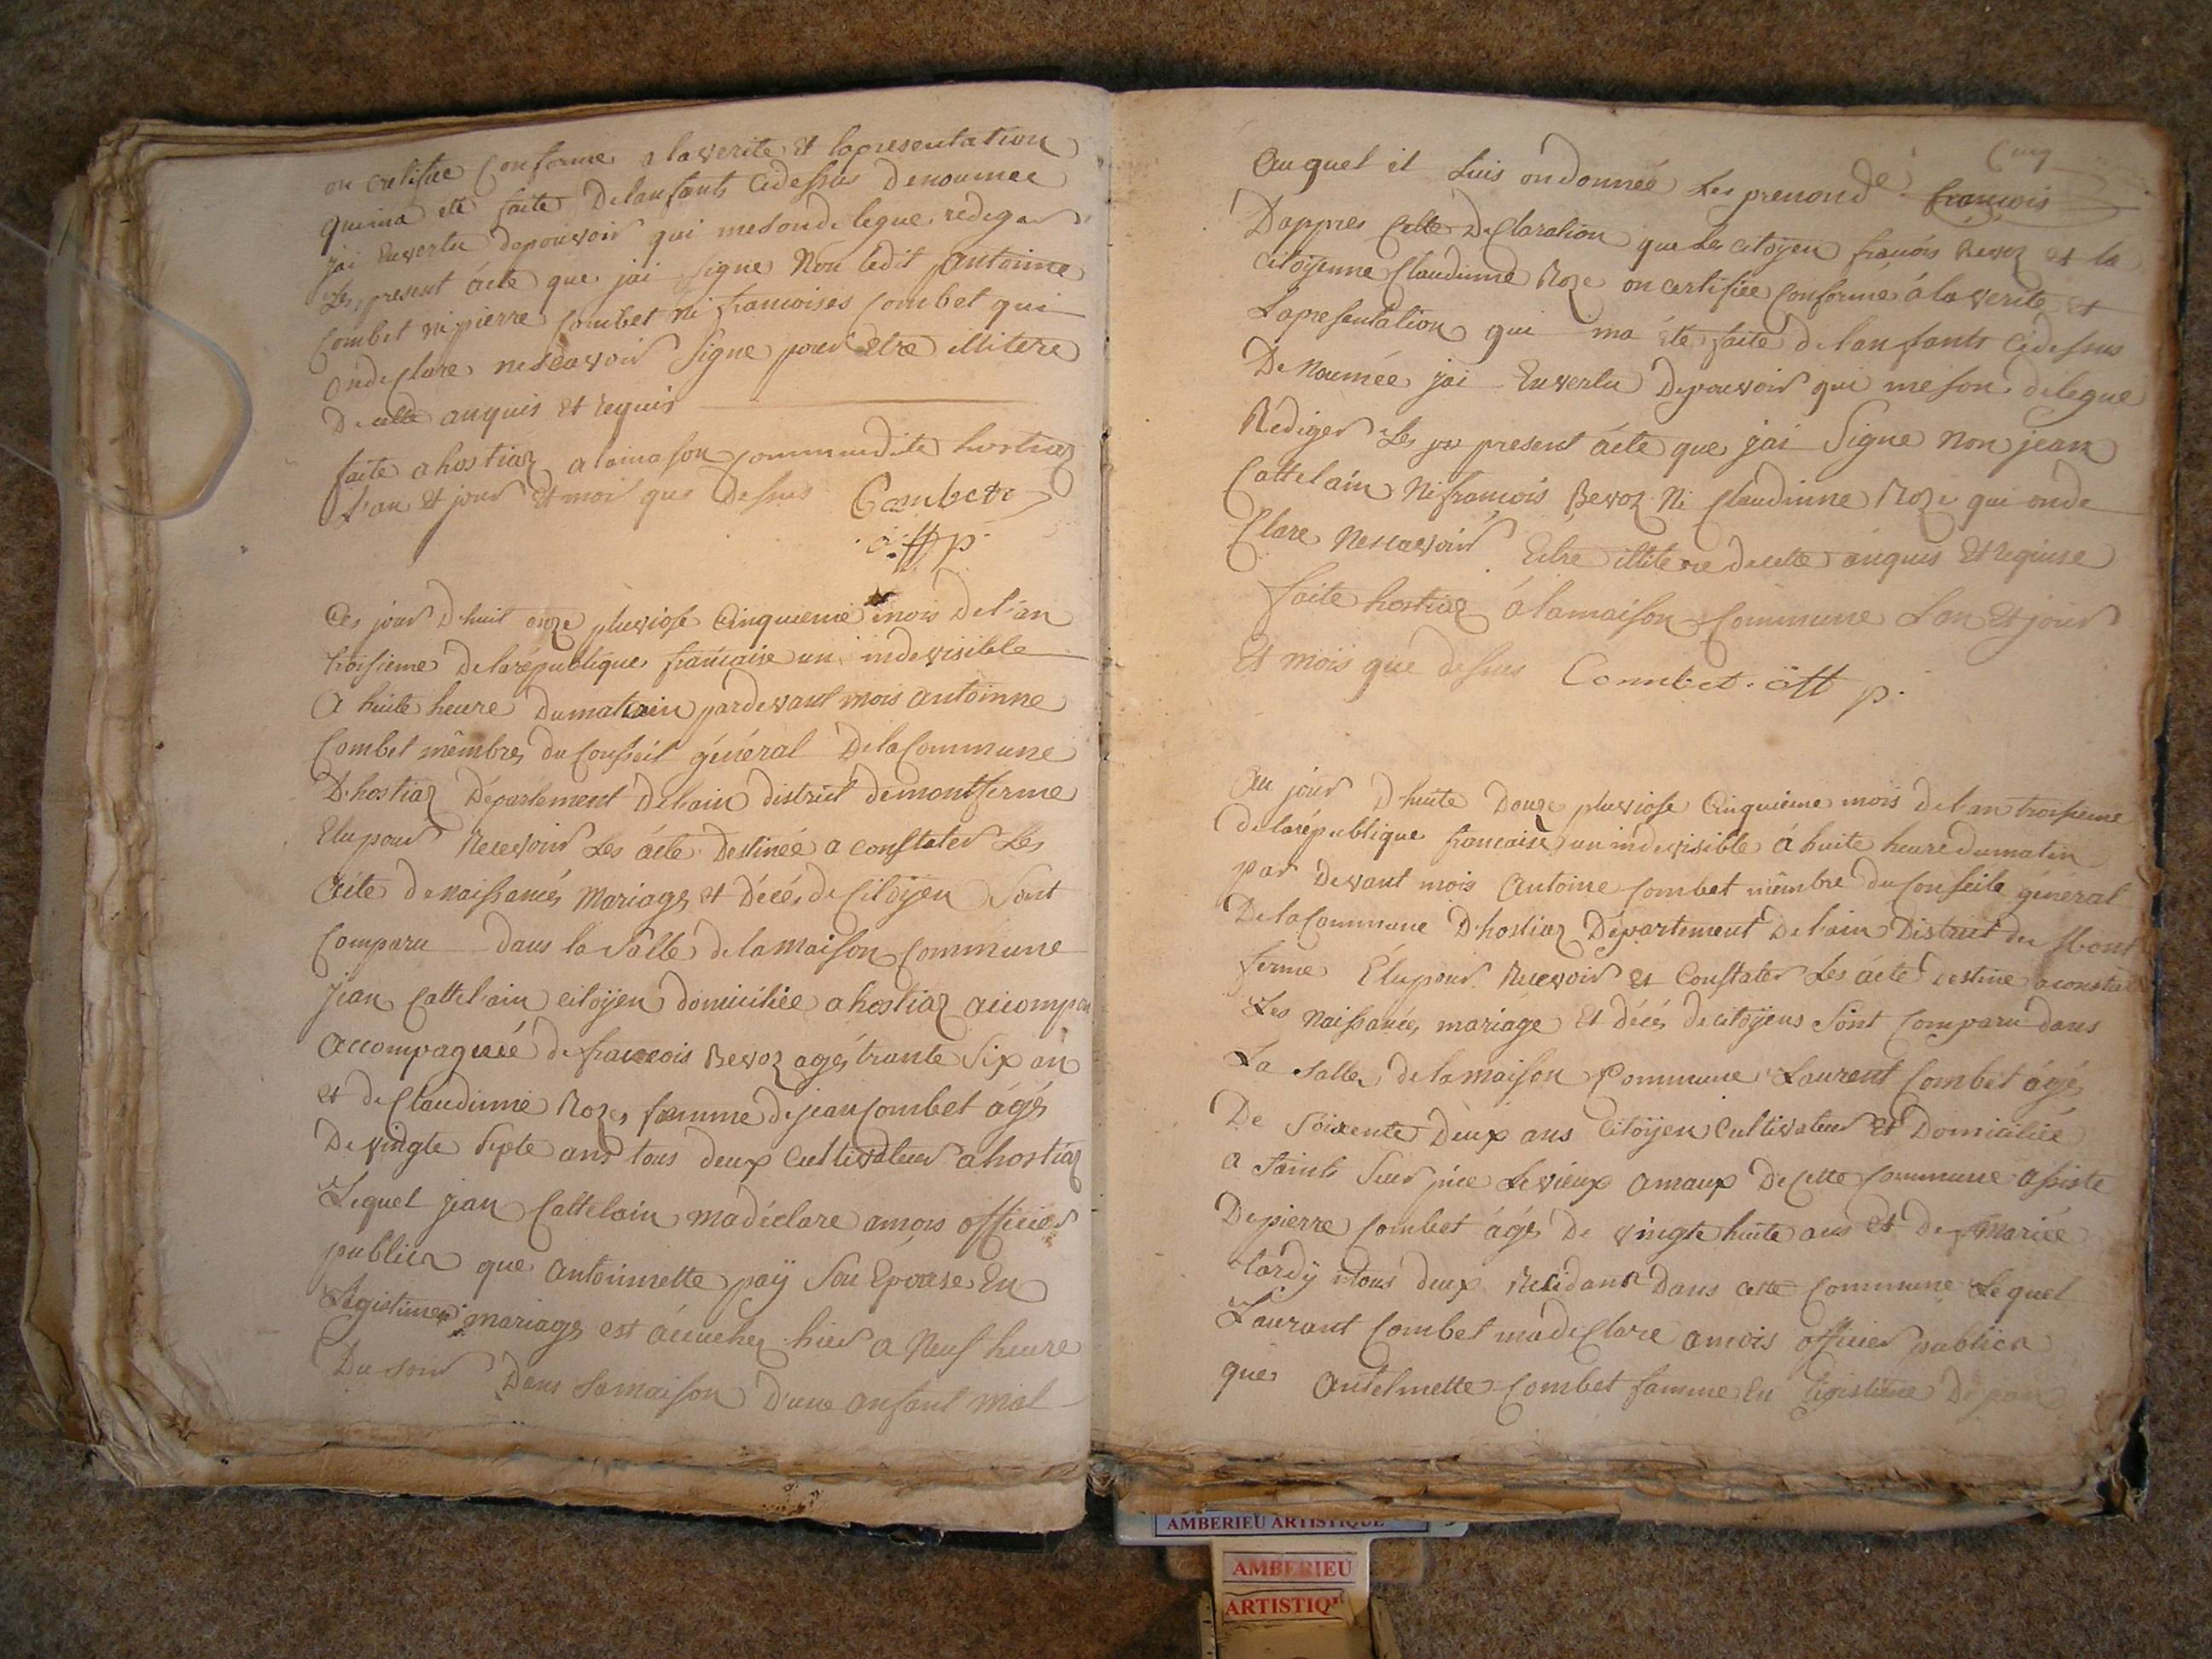 on cretifiee Conforme a la verite et lapresentation
quima ete faite Delanfants Cidessus Denoumee
jai Envertu depouvoir qui mesondelegue rediger
Les present acte que jai signe Non ledit antoinne
Combet ni pierre Combet ni francoises Combet qui
ondeClare nescavoir Signe pour etre illitere
Decelle anquis et requis
faite a hostiaz alamaison commundite hostiaz
L'an et jour et mois que dessus Combet
off p
Ces jour D'huit onze pluviose Cinquieme mois Del'an
troisieme Delarépublique francaise un indevisible
A huite heure Dumattin pardevant mois antoinne
Combet mêmbres du Conseil général DelaCommune
D'hostiaz Département Delain district demontferme
Elupour Recevoir Les ácte Destinée a constater Les
Acte denaissances Mariages et Décés de Citoÿen Sont
Comparu dans la Salle delamaison Commune
Jean Cattelain citoÿen domiciliée a hostiaz accompa
Accompagnéé defrancois Revoz agés trante Six an
et de Claudinne Roze famme dejean Combet ágés
Devingte Septe ans tous deux Cultivateur a hostiaz
Lequel jean Cattelain madéclare amois officier
publica que antoinnette paÿ Son Epouse En
Legistime mariages est accucher hier a Neuf heure
Du soir Dans samaison D'une anfant mal
Cinq
Auquel it Suis ondonnée Les prenonde francois
Dappres Cette DeClaration que Les citoÿen francois Revoz et la
Citoÿenne Claudinne Roze on certifiée Conforme á la verite et
Lapresentation qui ma éte faite delanfants Cidessus
De Noumée jai Envertu Depouvoir qui meson delegue
Rédiger Les present ácte que jai Signe Non jean
Cattelain Ni francois Revoz Ni Claudinne Roze qui onde
Clare Nescavoir Ectre illitere decette anquis Et requise
faite hostiaz álamaison Commune Lan Et jour
Et mois que dessus Combet off p.
Au jour D'huite Douze pluviose Cinquieme mois del'an troisieme
delarépublique francaise un indevisible á huite heure dumatin
par Devant mois Antoine Combet mêmbre du Conseile général
DelaCommune D'hostiaz Département Delain District du Mont
ferme Élupour Recevoir et Constater Les ácte destine aconstat
Les Naissances mariage Et décés decitoyens Sont Comparu dans
La Salle delamaison Commune Laurent Combet ágé
De Soixente Deux ans Citoÿen Cultivateur et Domiciliée
a Saints Suer pice Levieux amaux De Cette Commune assiste
Depierre Combet ágés De vingte huite ans et de Mariée
Cordÿ tous deux Residans Dans cette Commune Lequel
Laurant Combet madeClare amois officier publica
que Antelmette Combet famme En Legistime De
AMBERIEU ARTISTIQUE
AMBERIEU
ARTISTIQ